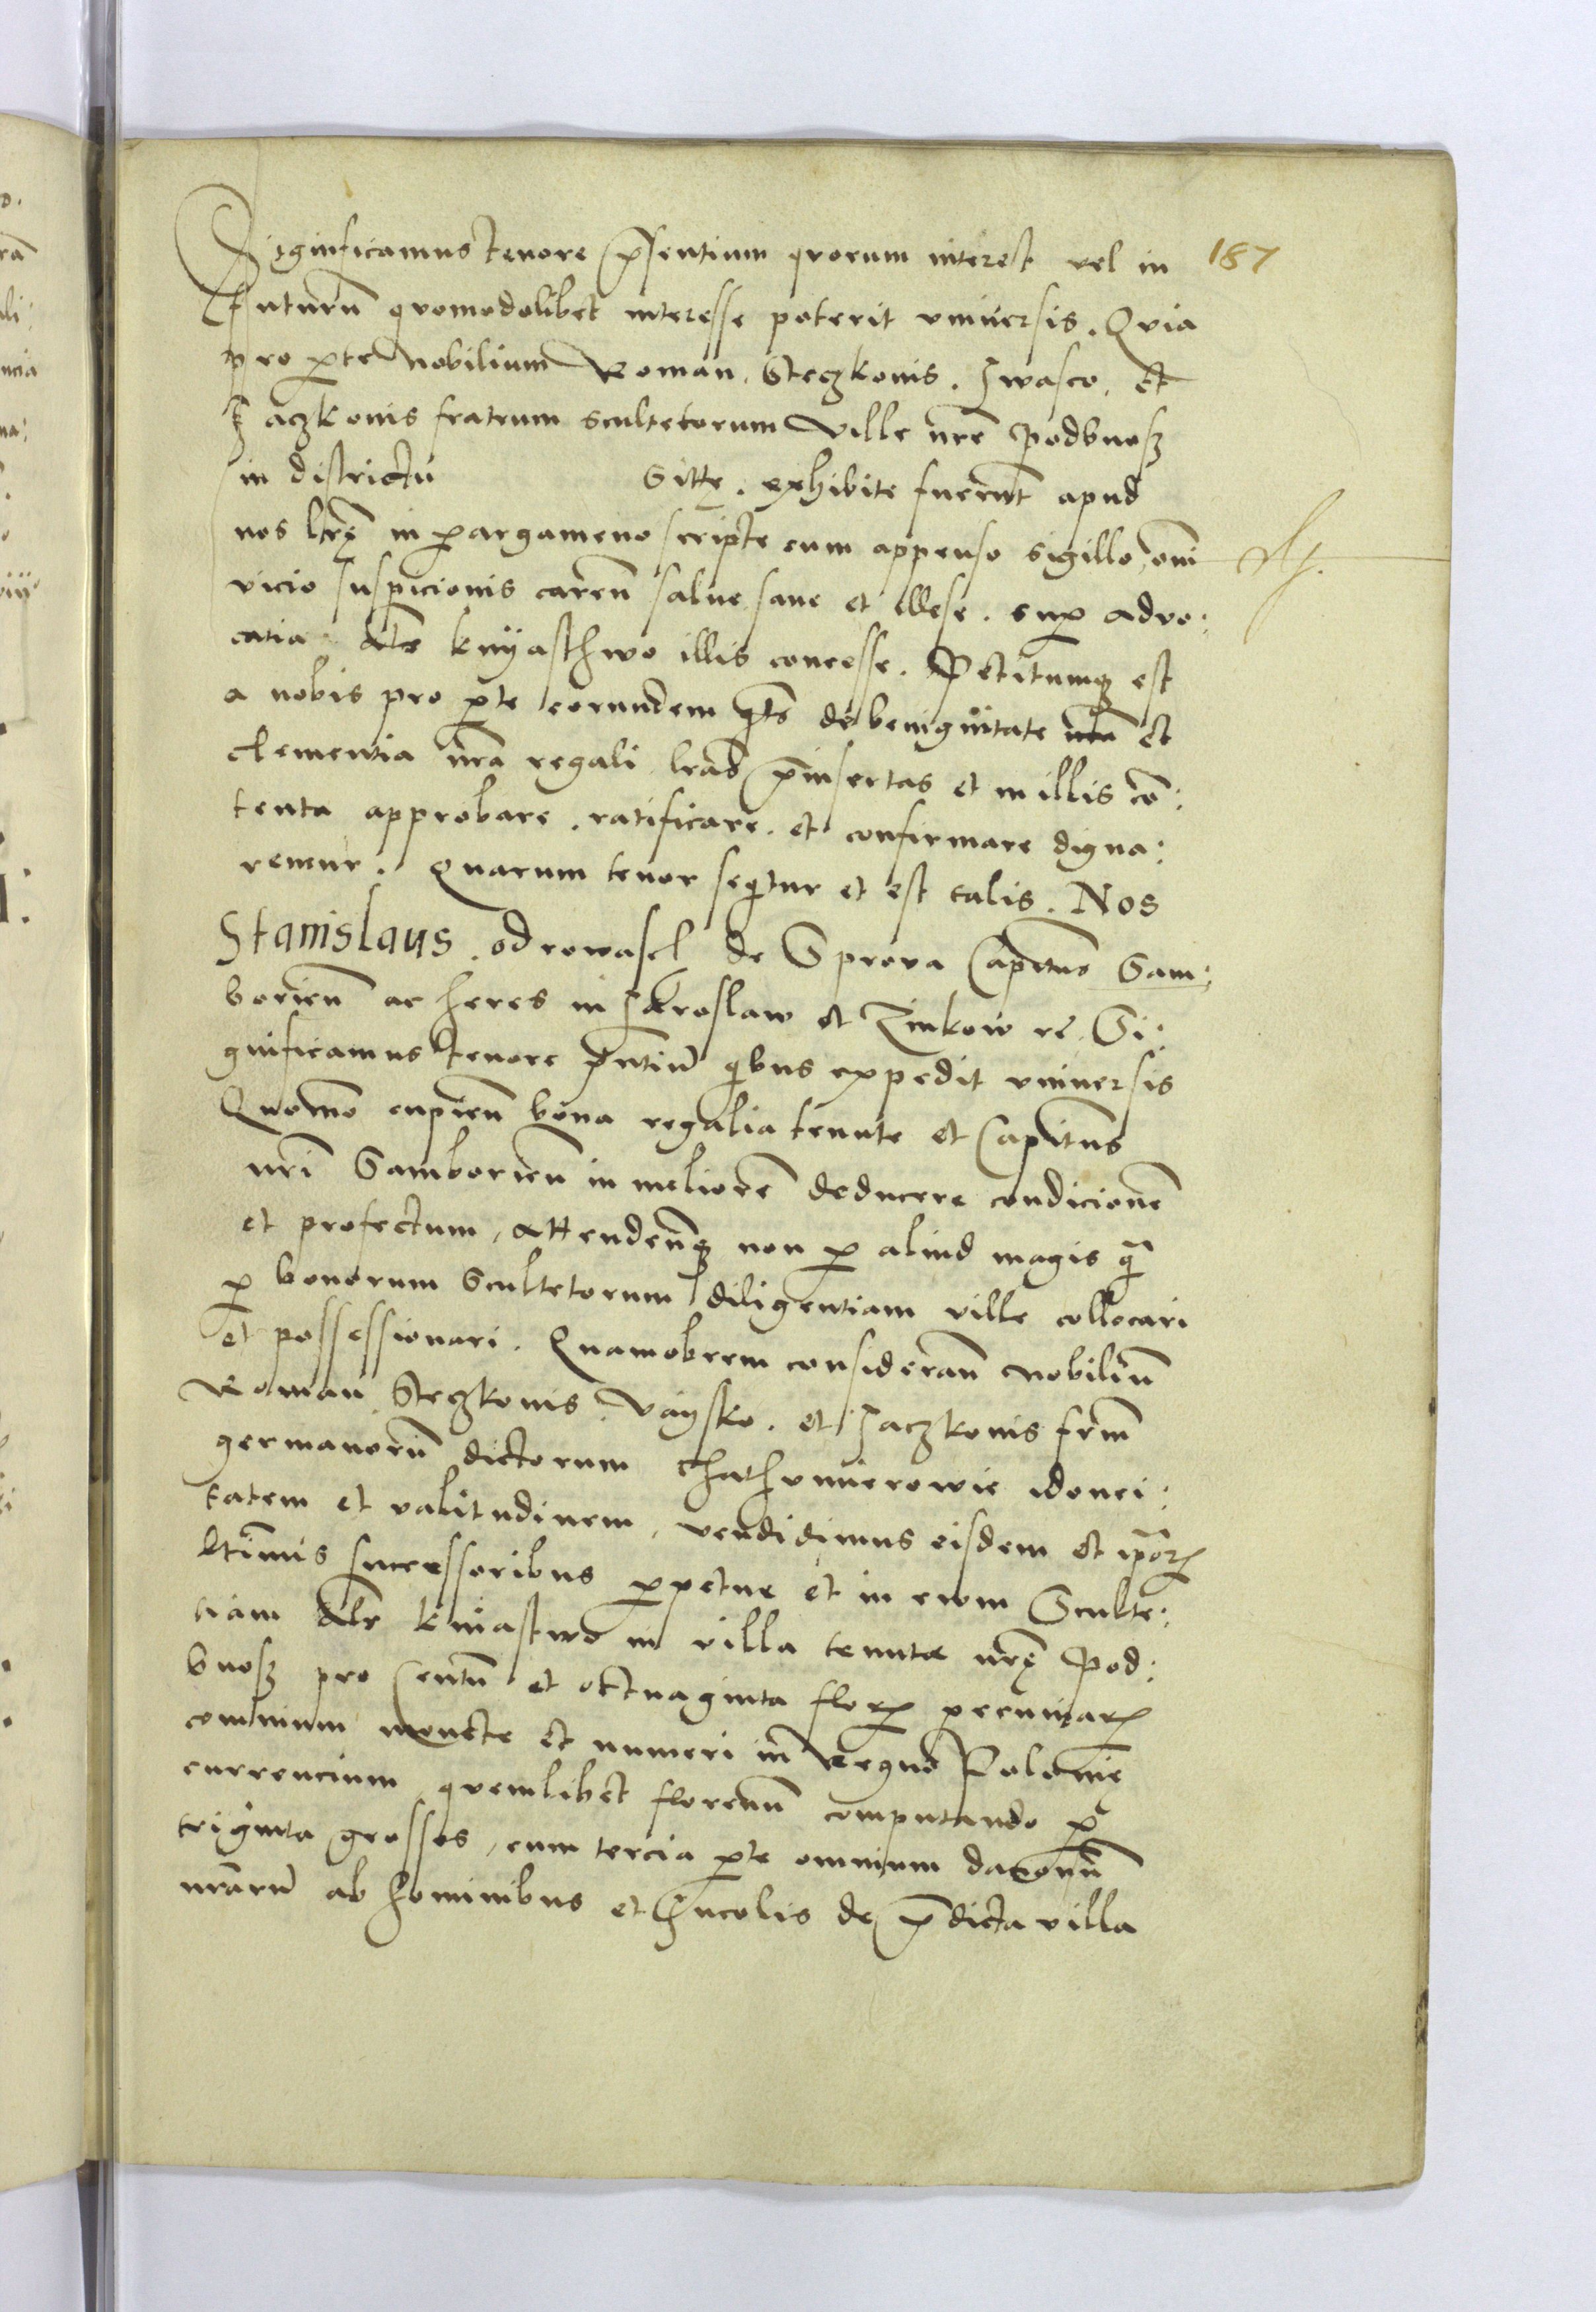 Significamus tenore p̄sentium quorum interest vel in 187
futurū quomodolibet interesse poterit vniuersis. Quia
pro p̱te Nobilium Roman, Steczkonis, Iwasco, et
Iaczkonis fratrum scultetorum Ville nr̄e Podbuosz
in districtu sitte. exhibite fuerunt apud
nos lrę̄ in pargameno scripte cum appenso sigillo, om̄i
vicio suspicionis careñ salue sane et illese. sup̱ advo:
catia als knÿasthwo illis concesse. Petitumq̱ est
a nobis pro p̱te eorundem q̄ts de benignitate et
clementia nr̄a regali lr̄as p̄insertas et in illis cō:
tenta approbare. ratificare. et confirmare digna:
remur. Quarum tenor seqitur et est talis. Nos
Stanislaus. odrowasch de Sprova Capitneus Sam:
borieñ ac heres in Jaroslaw et Zinkow rc̄. Si:
gnificamus tenore p̄ntiū quibus expedit vniuersis
Quomo cupieñ bona regalia tenute et Capitnes
nr̄i Samborieñ in meliorē deducere condicionē
et profectum, attendeñq̱ non p̱ aliud magis q̄
p̱ bonorum Scultetorum diligentiam ville collocari
et possessionari. Quamobrem considerañ nobiliū
Roman, Steczkonis, Vaÿsko, et Iaczkonis frm̄
germanorū dictorum idonei:
tatem et valitudinem, vendidimus eisdem et ip̄orꝝ
ltīmis successoribus p̱petue et in ewm Sculte:
tiam als kniastwo in villa tenutæ nrę̄ Pod:
buosz pro Centū et octuaginta florꝝ pecuniarꝝ
communi monete et numeri in Regno Polonię
currencium, quemlibet florenū computando p̱
triginta grossos, cum tercia p̱te omnium dacionū
nr̄arū ab hominibus et Incolis de p̄dicta villa